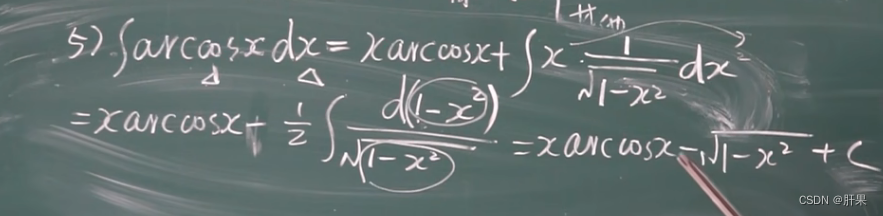 5) ∫arccosxdx = xarccosx + ∫x·1/√1-x² dx
= xarccosx + 1/2 ∫ d(1-x²)/√1-x² = xarccosx - √1-x² + C
CSDN @肝果